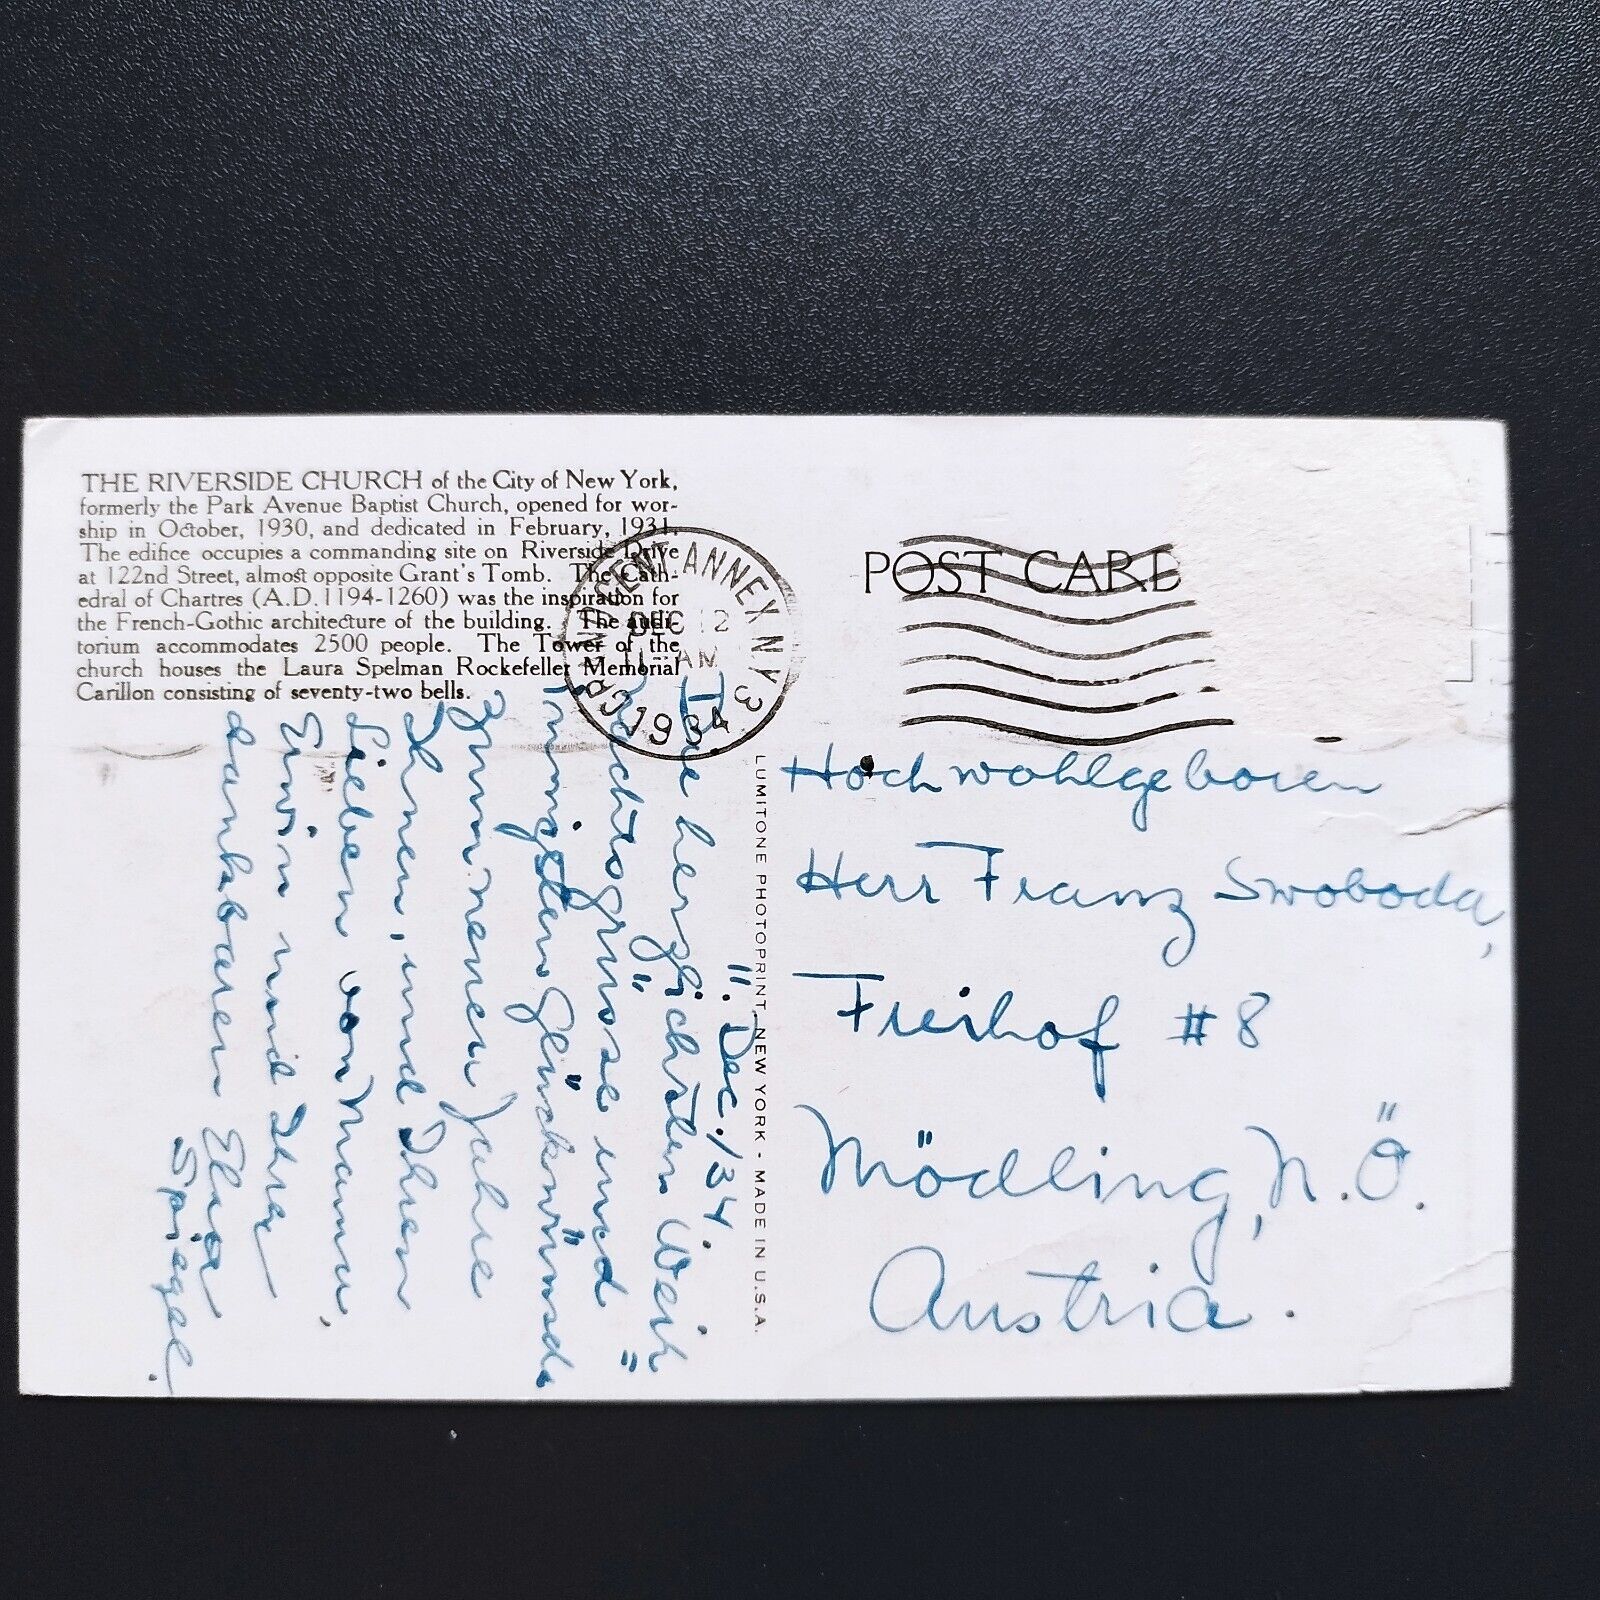 THE RIVERSIDE CHURCH of the City of New York,
formerly the Park Avenue Baptist Church, opened for wor-
ship in October, 1930, and dedicated in February, 1931.
The edifice occupies a commanding site on Riverside Drive
at 122nd Street, almost opposite Grant's Tomb. The Cath-
edral of Chartres (A.D. 1194-1260) was the inspiration for
the French-Gothic architecture of the building. The audi-
torium accommodates 2500 people. The Tower of the
church houses the Laura Spelman Rockefeller Memorial
Carillon consisting of seventy-two bells.
GRAND CENT. ANNEX N.Y. 3
DEC 12
11 AM
1934
POST CARD
11. Dec. 134
Die herzlichsten Weih=
nachtsgrüsse und
innigsten Glückwünsche
zum neuen Jahre
Ihnen, und Ihren
Lieben von Mama,
Erwin und Ihrer
dankbaren Elsa
Spiegel.
LUMITONE PHOTOPRINT, NEW YORK - MADE IN U.S.A.
Hochwohlgeboren
Herr Franz Swoboda,
Freihof #8
Mödling, N.Ö.
Austria.